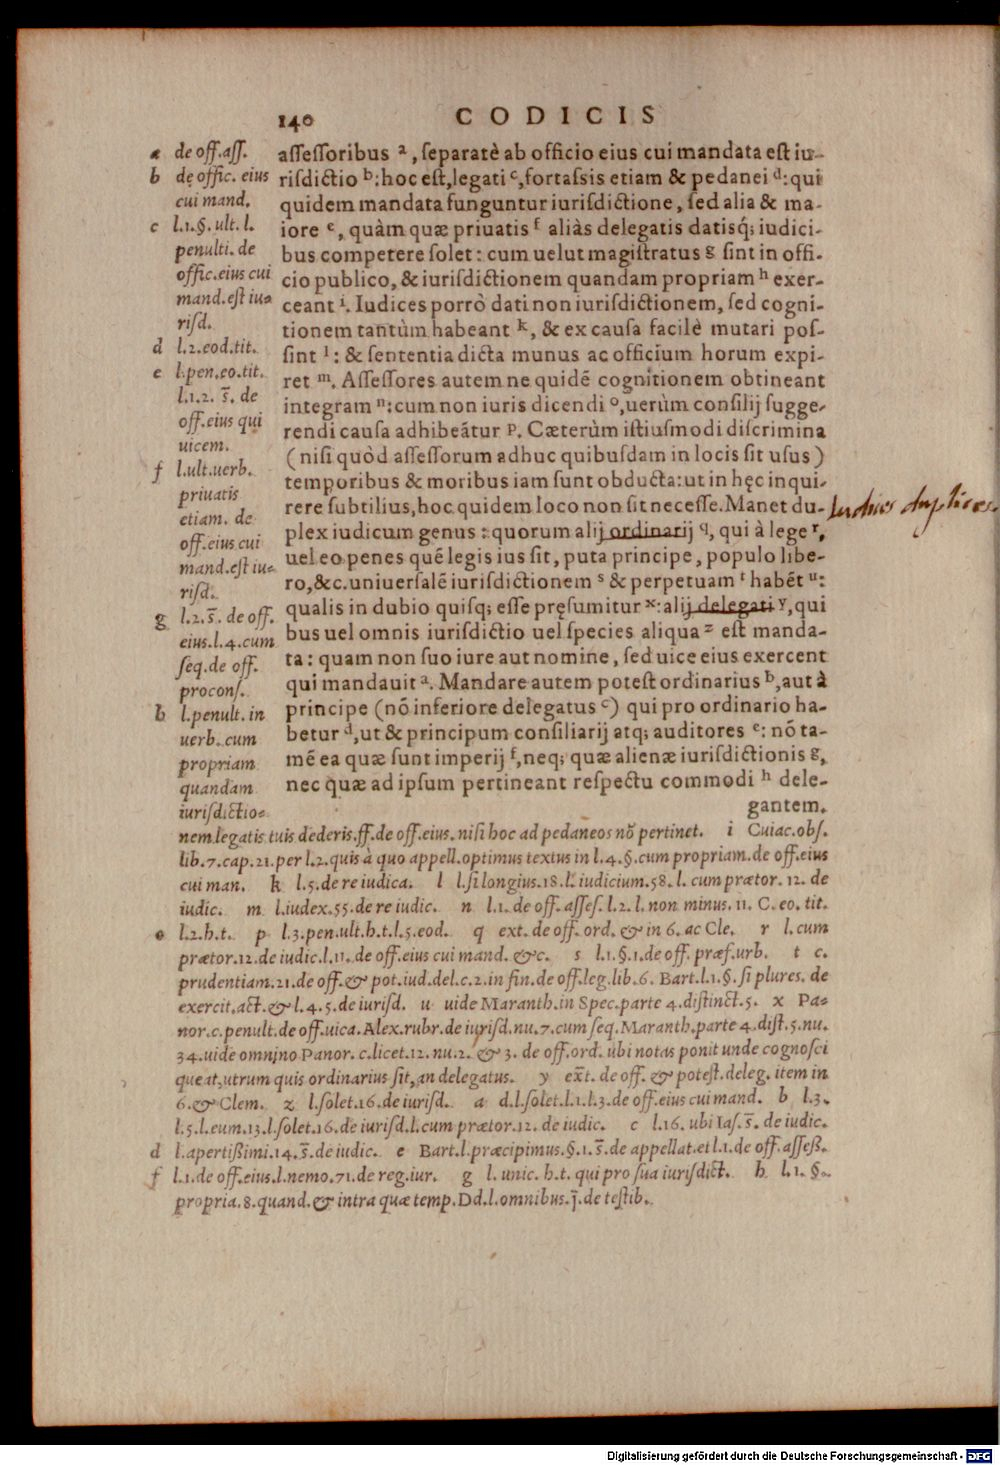 140 CODICIS
assessoribus ᵃ, separatè ab officio eius cui mandata est iu-
risdictio ᵇ: hoc est, legati ᶜ, fortassis etiam & pedanei ᵈ: qui
quidem mandata funguntur iurisdictione, sed alia & ma-
iore ᵉ, quàm quæ priuatis ᶠ aliàs delegatis datisq́; iudici-
bus competere solet: cum uelut magistratus ᵍ sint in offi-
cio publico, & iurisdictionem quandam propriam ʰ exer-
ceant ⁱ. Iudices porrò dati non iurisdictionem, sed cogni-
tionem tantùm habeant ᵏ, & ex causa facilè mutari pos-
sint ˡ: & sententia dicta munus ac officium horum expi-
ret ᵐ. Assessores autem ne quidẽ cognitionem obtineant
integram ⁿ: cum non iuris dicendi ᵒ, uerùm consilij sugge-
rendi causa adhibeãtur ᵖ. Cæterùm istiusmodi discrimina
(nisi quòd assessorum adhuc quibusdam in locis sit usus)
temporibus & moribus iam sunt obducta: ut in hęc inqui-
rere subtilius, hoc quidem loco non sit necesse. Manet du-
plex iudicum genus: quorum alij ordinarij q, qui à lege ʳ,
uel eo penes quẽ legis ius sit, puta principe, populo libe-
ro, &c. uniuersalẽ iurisdictionem ˢ & perpetuam ᵗ habẽt ᵘ:
qualis in dubio quisq; esse pręsumitur ˣ: alij delegati ʸ, qui
bus uel omnis iurisdictio uel species aliqua ᶻ est manda-
ta: quam non suo iure aut nomine, sed uice eius exercent
qui mandauit ᵃ. Mandare autem potest ordinarius ᵇ, aut à
principe (nõ inferiore delegatus ᶜ) qui pro ordinario ha-
betur ᵈ, ut & principum consiliarij atq; auditores ᵉ: nõ ta-
mẽ ea quæ sunt imperij ᶠ, neq; quæ alienæ iurisdictionis ᵍ,
nec quæ ad ipsum pertineant respectu commodi ʰ dele-
gantem.
a de off. ass.
b de offic. eius
cui mand.
c l.1.§. ult. l.
penulti. de
offic. eius cui
mand. est iu-
risd.
d l.2. eod. tit.
e l. pen. eo. tit.
l.1.2. s̄. de
off. eius qui
uicem.
f l. ult. uerb.
priuatis
etiam. de
off. eius cui
mand. est iu-
risd.
g l.2. s̄. de off.
eius. l.4. cum
seq. de off.
procons.
h l. penult. in
uerb. cum
propriam
quandam
iurisdictio-
nem legatis tuis dederis. ff. de off. eius. nisi hoc ad pedaneos nõ pertinet. i Cuiac. obs.
lib. 7. cap. 21. per l.2. quis à quo appell. optimus textus in l.4.§. cum propriam. de off. eius
cui man. k l.5. de re iudica. l l. si longius. 18. l. iudicium. 58. l. cum prætor. 12. de
iudic. m l. iudex. 55. de re iudic. n l.1. de off. asses. l.2. l. non minus. 11. C. eo. tit.
o l.2. h.t. p l.3. pen. ult. h.t. l.5. eod. q ext. de off. ord. & in 6. ac Cle. r l. cum
prætor. 12. de iudic. l.11. de off. eius cui mand. &c. s l.1.§.1. de off. præf. urb. t c.
prudentiam. 21. de off. & pot. iud. del. c.2. in fin. de off. leg. lib. 6. Bart. l.1.§. si plures. de
exercit. act. & l.4.5. de iurisd. u uide Maranth. in Spec. parte 4. distinct. 5. x Pa-
nor. c. penult. de off. uica. Alex. rubr. de iurisd. nu. 7. cum seq. Maranth. parte 4. dist. 5. nu.
34. uide omnino Panor. c. licet. 12. nu. 2. & 3. de off. ord. ubi notas ponit unde cognosci
queat, utrum quis ordinarius sit, an delegatus. y ext̄. de off. & potest. deleg. item in
6. & Clem. z l. solet. 16. de iurisd. a d. l. solet. l.1. l.3. de off. eius cui mand. b l.3.
l.5. l. eum. 13. l. solet. 16. de iurisd. l. cum prætor. 12. de iudic. c l.16. ubi Ias. s̄. de iudic.
d l. apertißimi. 14. s̄. de iudic. e Bart. l. præcipimus. §.1. s̄. de appellat. et l.1. de off. asseß.
f l.1. de off. eius. l. nemo. 71. de reg. iur. g l. unic. h.t. qui pro sua iurisdict. h l.1.§.
propria. 8. quand. & intra quæ temp. Dd. l. omnibus. j̄. de testib.
Iudices duplices.
Digitalisierung gefördert durch die Deutsche Forschungsgemeinschaft - DFG